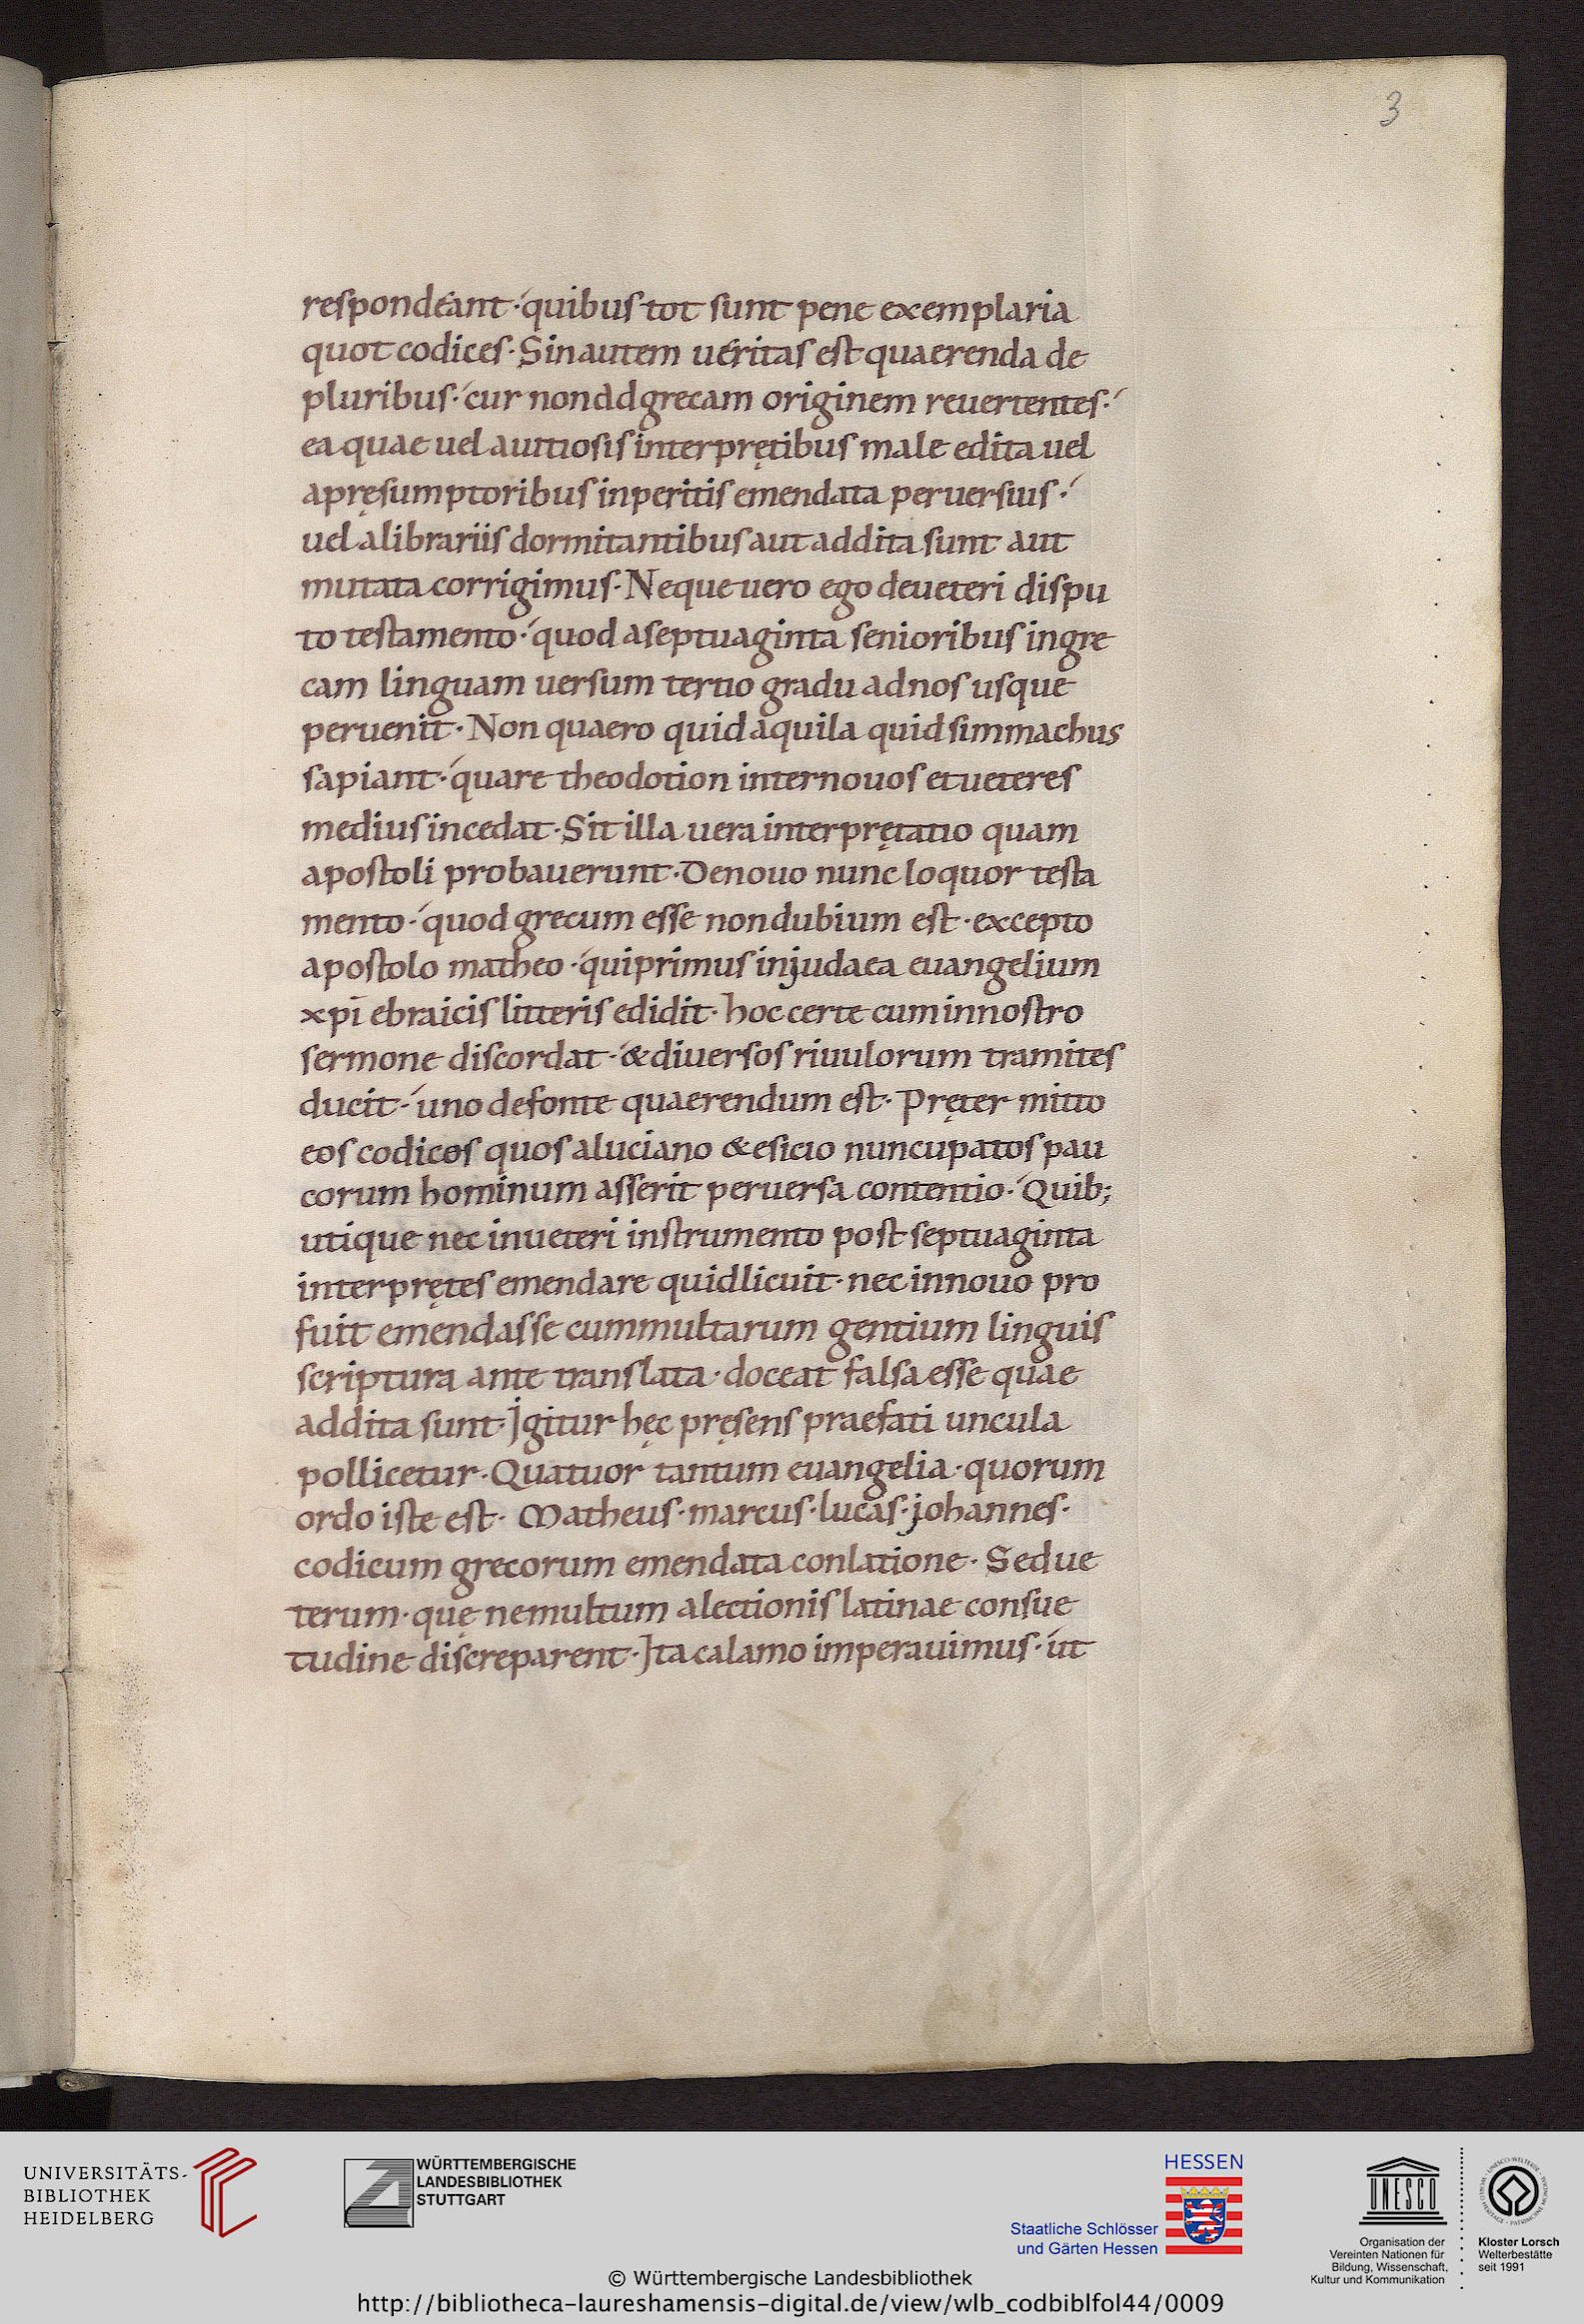 3
respondeant· quibus tot sunt pene exemplaria
quot codices· Sin autem ueritas est quaerenda de
pluribus· cur non ad grecam originem reuertentes·
ea quae uel auitiosis interprętibus male edita uel
apręsumptoribus inperitis emendata peruersius·
uel alibrariis dormitantibus aut addita sunt aut
mutata corrigimus· Neque uero ego deueteri dispu
to testamento· quod aseptuaginta senioribus ingre
cam linguam uersum tertio gradu adnos usque
peruenit· Non quaero quid aquila quid simmachus
sapiant· quare theodotion internouos etueteres
medius incedat· Sit illa uera interprętatio quam
apostoli probauerunt· Denouo nunc loquor testa
mento· quod grecum esse nondubium est· excepto
apostolo matheo· qui primus in judaea euangelium
xpī ebraicis litteris edidit· hoc certe cum innostro
sermone discordat· & diuersos riuulorum tramites
ducit· uno defonte quaerendum est· Pręter mitto
eos codicos quos aluciano & esicio nuncupatos pau
corum hominum asserit peruersa contentio· Quib;
utique nec inueteri instrumento post septuaginta
interprętes emendare quid licuit· nec innouo pro
fuit emendasse cum multarum gentium linguis
scriptura ante translata· doceat falsa esse quae
addita sunt· Jgitur hęc pręsens praefati uncula
pollicetur· Quatuor tantum euangelia· quorum
ordo iste est· Matheus· marcus· lucas· johannes·
codicum grecorum emendata conlatione· Sed ue
terum· quę nemultum alectionis latinae consue
tudine discreparent· Jta calamo imperauimus· ut
UNIVERSITÄTS-
BIBLIOTHEK
HEIDELBERG
WÜRTTEMBERGISCHE
LANDESBIBLIOTHEK
STUTTGART
HESSEN
Staatliche Schlösser
und Gärten Hessen
UNESCO
Organisation der
Vereinten Nationen für
Bildung, Wissenschaft,
Kultur und Kommunikation
Kloster Lorsch
Welterbestätte
seit 1991
© Württembergische Landesbibliothek
http://bibliotheca-laureshamensis-digital.de/view/wlb_codbiblfol44/0009